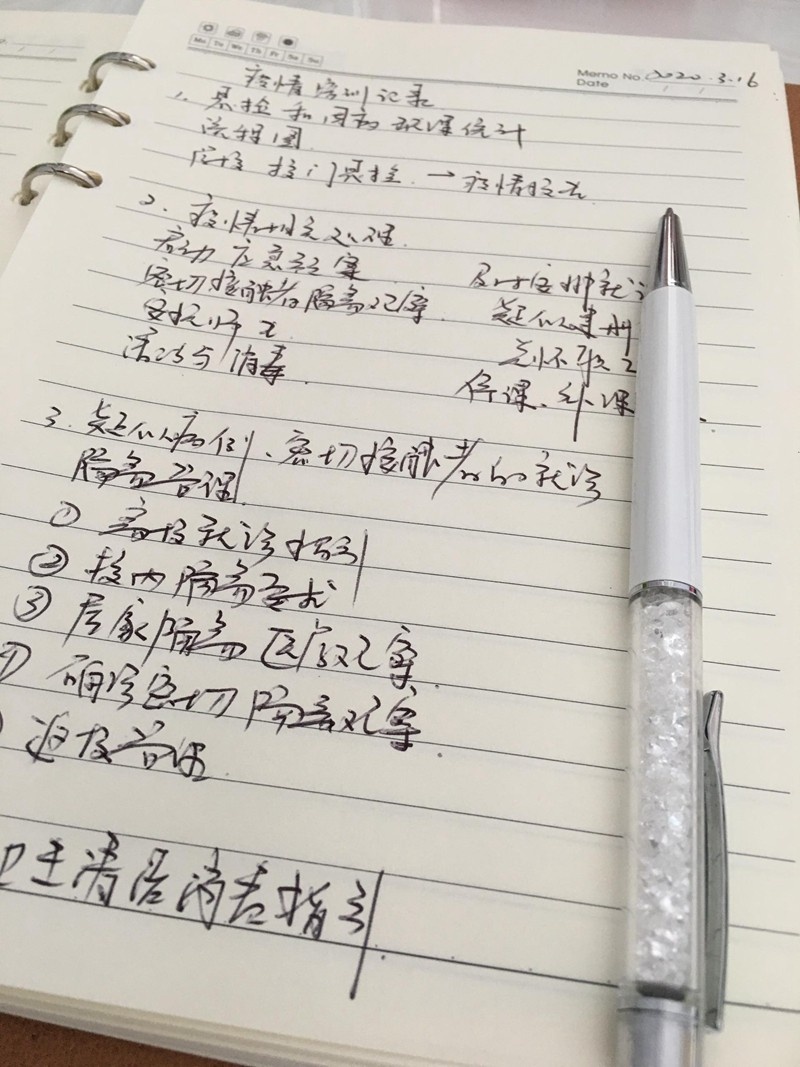 Mo Tu We Th Fr Sa Su
Memo No.
Date 2020.3.16
疫情培训记录
1. 晨检和因病缺课统计
流程图
校门晨检. → 疫情
2. 疫情处理
启动应急预案
密切接触者隔离观察
清洁与消毒
及时安排就
疑似
关怀
停课、补课
3. 疑似病例、密切接触者的就诊
隔离管理
① 离校就诊指引
② 校内隔离要求
③ 居家隔离医学观察
确诊密切隔离观察
返校管理
卫生清洁消毒指引